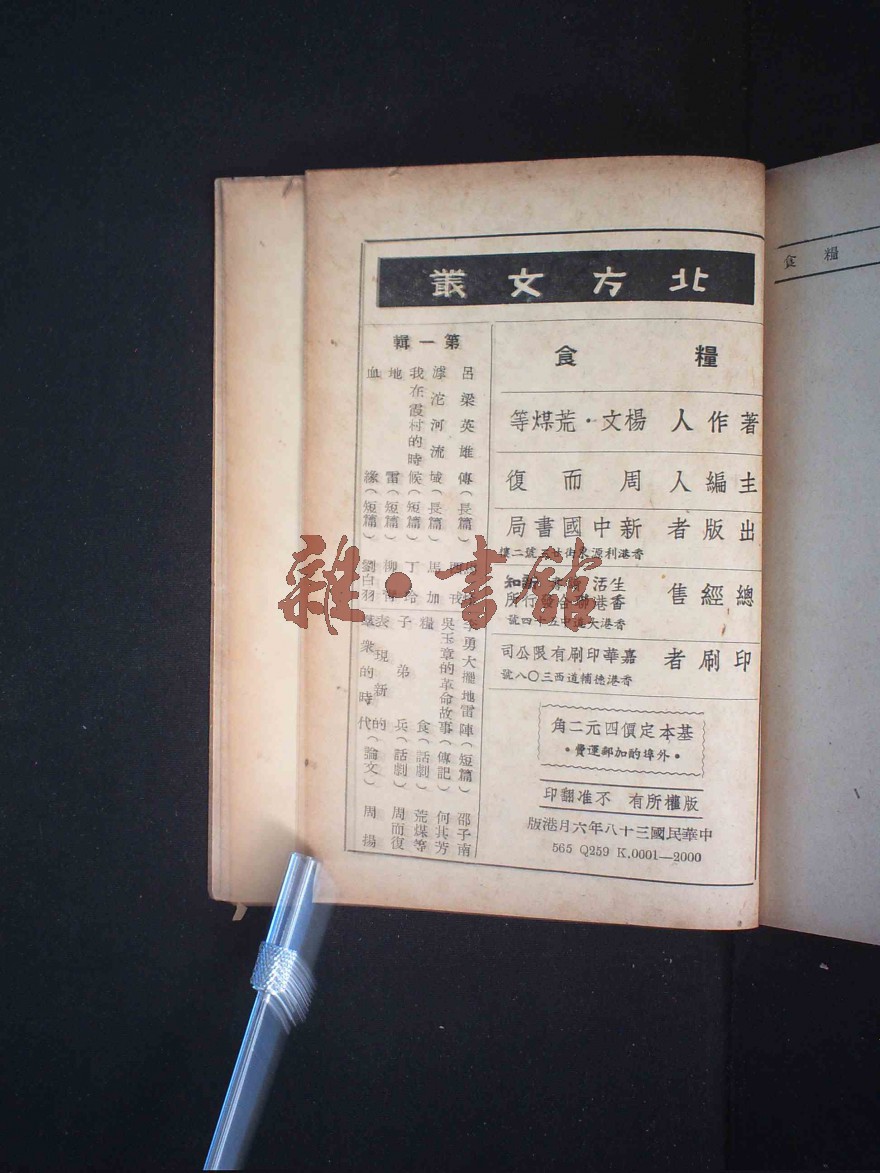 北方文叢
糧食
著作人 楊文·荒煤等
主編人 周而復
出版者 新中國書局
總經售 生活 新知
香港聯合發行所
印刷者 嘉華印刷有限公司
香港德輔道西三〇八號
基本定價四元二角
·外埠酌加郵運費·
版權所有 不准翻印
中華民國三十八年六月港版
565 Q259 K.0001—2000
第一輯
呂梁英雄傳(長篇)
滹沱河流域(長篇) 馬加
我在霞村的時候(短篇) 丁玲
地雷(短篇) 柳青
血緣(短篇) 劉白羽
李勇大擺地雷陣(短篇) 邵子南
吳玉章的革命故事(傳記) 何其芳
糧食(話劇) 荒煤等
子弟兵(話劇) 周而復
表現新的羣衆的時代(論文) 周揚
糧食
雜·書館